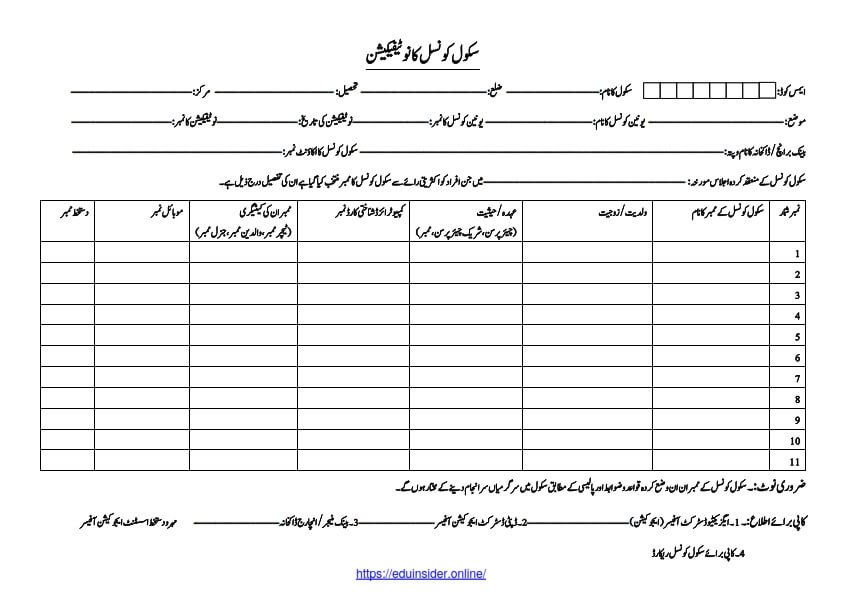 سکول کونسل کا نوٹیفیکیشن
ایمس کوڈ: سکول کا نام: ضلع: تحصیل: مرکز:
موضع: یونین کونسل کا نام: یونین کونسل نمبر: نوٹیفکیشن کی تاریخ: نوٹیفکیشن کا نمبر:
بینک برانچ / ڈاکخانہ کا نام و پتہ: سکول کونسل کا اکاؤنٹ نمبر:
سکول کونسل کے منعقد کردہ اجلاس مورخہ: میں جن افراد کو اکثریتی رائے سے سکول کونسل کا ممبر منتخب کیا گیا ہے ان کی تفصیل درج ذیل ہے۔
نمبر شمار سکول کونسل کے ممبر کا نام ولدیت / زوجیت عہدہ / حیثیت (چیئر پرسن، شریک چیئر پرسن، ممبر) کمپیوٹرائزڈ شناختی کارڈ نمبر ممبران کی کیٹیگری (ٹیچر ممبر، والدین ممبر، جنرل ممبر) موبائل نمبر دستخط ممبر
1
2
3
4
5
6
7
8
9
10
11
ضروری نوٹ:۔ سکول کونسل کے ممبران ان وضع کردہ قواعد و ضوابط اور پالیسی کے مطابق سکول میں سرگرمیاں سرانجام دینے کے مختار ہوں گے۔
کاپی برائے اطلاع:۔ 1۔ ایگزیکٹیو ڈسٹرکٹ آفیسر (ایجوکیشن) 2۔ ڈپٹی ڈسٹرکٹ ایجوکیشن آفیسر 3۔ بینک منیجر / انچارج ڈاکخانہ مہر و دستخط اسسٹنٹ ایجوکیشن آفیسر
4۔ کاپی برائے سکول کونسل ریکارڈ
https://eduinsider.online/